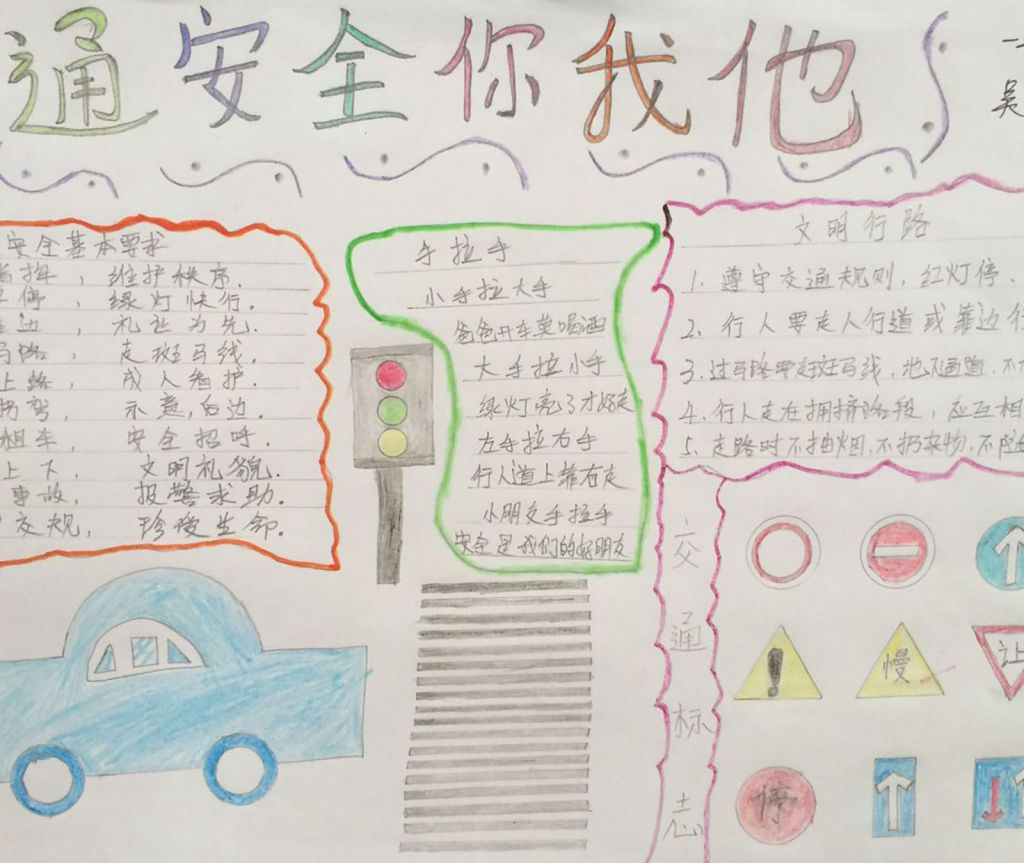 通安全你我他
一
吴
安全基本要求
, 维护秩序.
停, 绿灯快行.
边, 礼让为先.
马路, 走斑马线.
上路, 成人看护.
拐弯, 示意,右边.
租车, 安全招呼.
上下, 文明礼貌.
事故, 报警求助.
交规, 珍爱生命.
手拉手
小手拉大手
爸爸开车莫喝酒
大手拉小手
绿灯亮了才好走
左手拉右手
行人道上靠右走
小朋友手拉手
安全是我们的好朋友
文明行路
1. 遵守交通规则, 红灯停.
2. 行人要走人行道或靠边行
3. 过马路要走斑马线, 地下通道, 不
4. 行人走在拥挤阶段, 应互相
5. 走路时不抽烟, 不扔杂物, 不随
交通标志
!
慢
让
停